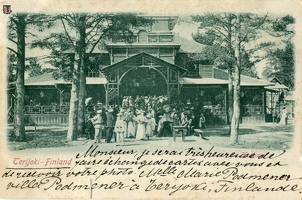 Terijoki-Finland
Monsieur, je serai très heureuse de
faire échange de cartes avec vous et
de recevoir votre photo. Melle Marie Podmener
villa Podmener à Terijoki, Finlande